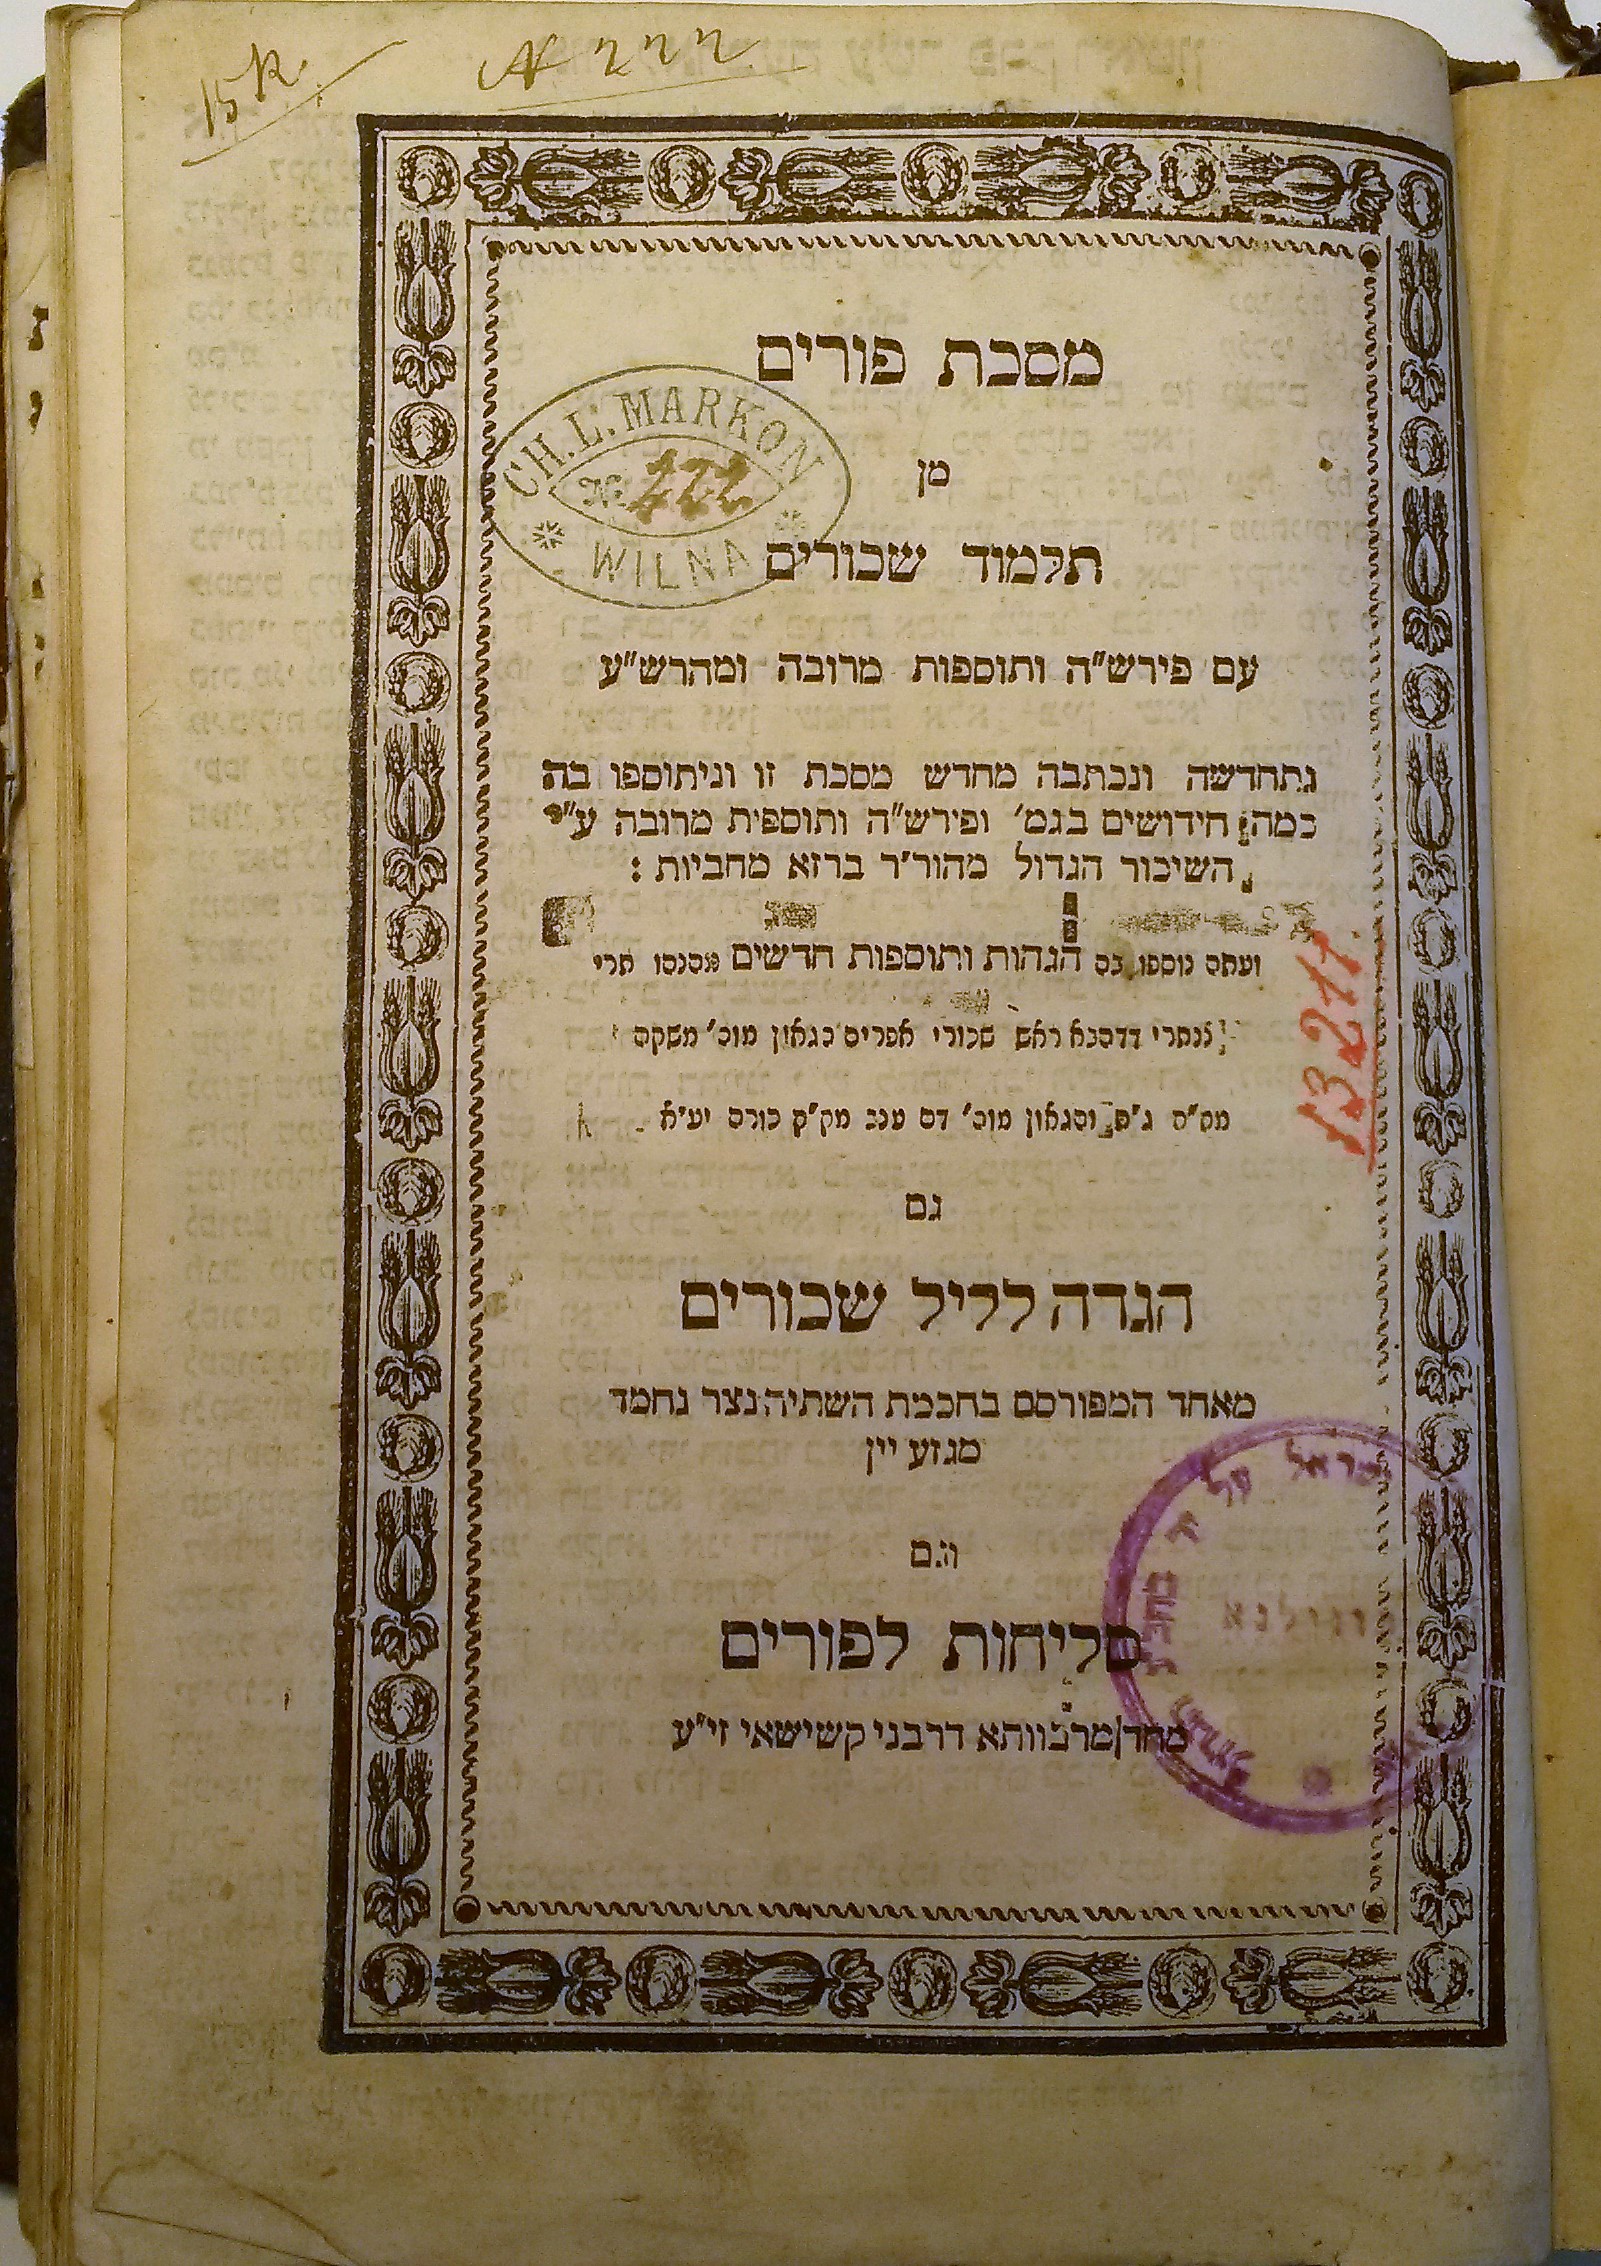 15 R.
№ 222
מסכת פורים
CH. L. MARKON
№ 222
WILNA
מן
תלמוד שכורים
עם פירש"ה ותוספות מרובה ומהרש"ע
נתחדשה ונכתבה מחדש מסכת זו וניתוספו בה
כמה חידושים בגמ' ופירש"ה ותוספית מרובה ע"י
השיכור הגדול מהור"ר ברזא מחביות :
ועתה נוספו בה הגהות ותוספות חדשים מהנהו תרי
צנתרי דדהבא ראש שכורי אפרים הגאון מוה' משקה
וסגאון מוה' דם ענב מק"ק כורם יע"א
13211.
גם
הגדה לליל שכורים
מאחד המפורסם בחכמת השתיה נצר נחמד
מגזע יין
וגם
סליחות לפורים
מחד מרבוותא דרבני קשישאי זי"ע
ווילנא